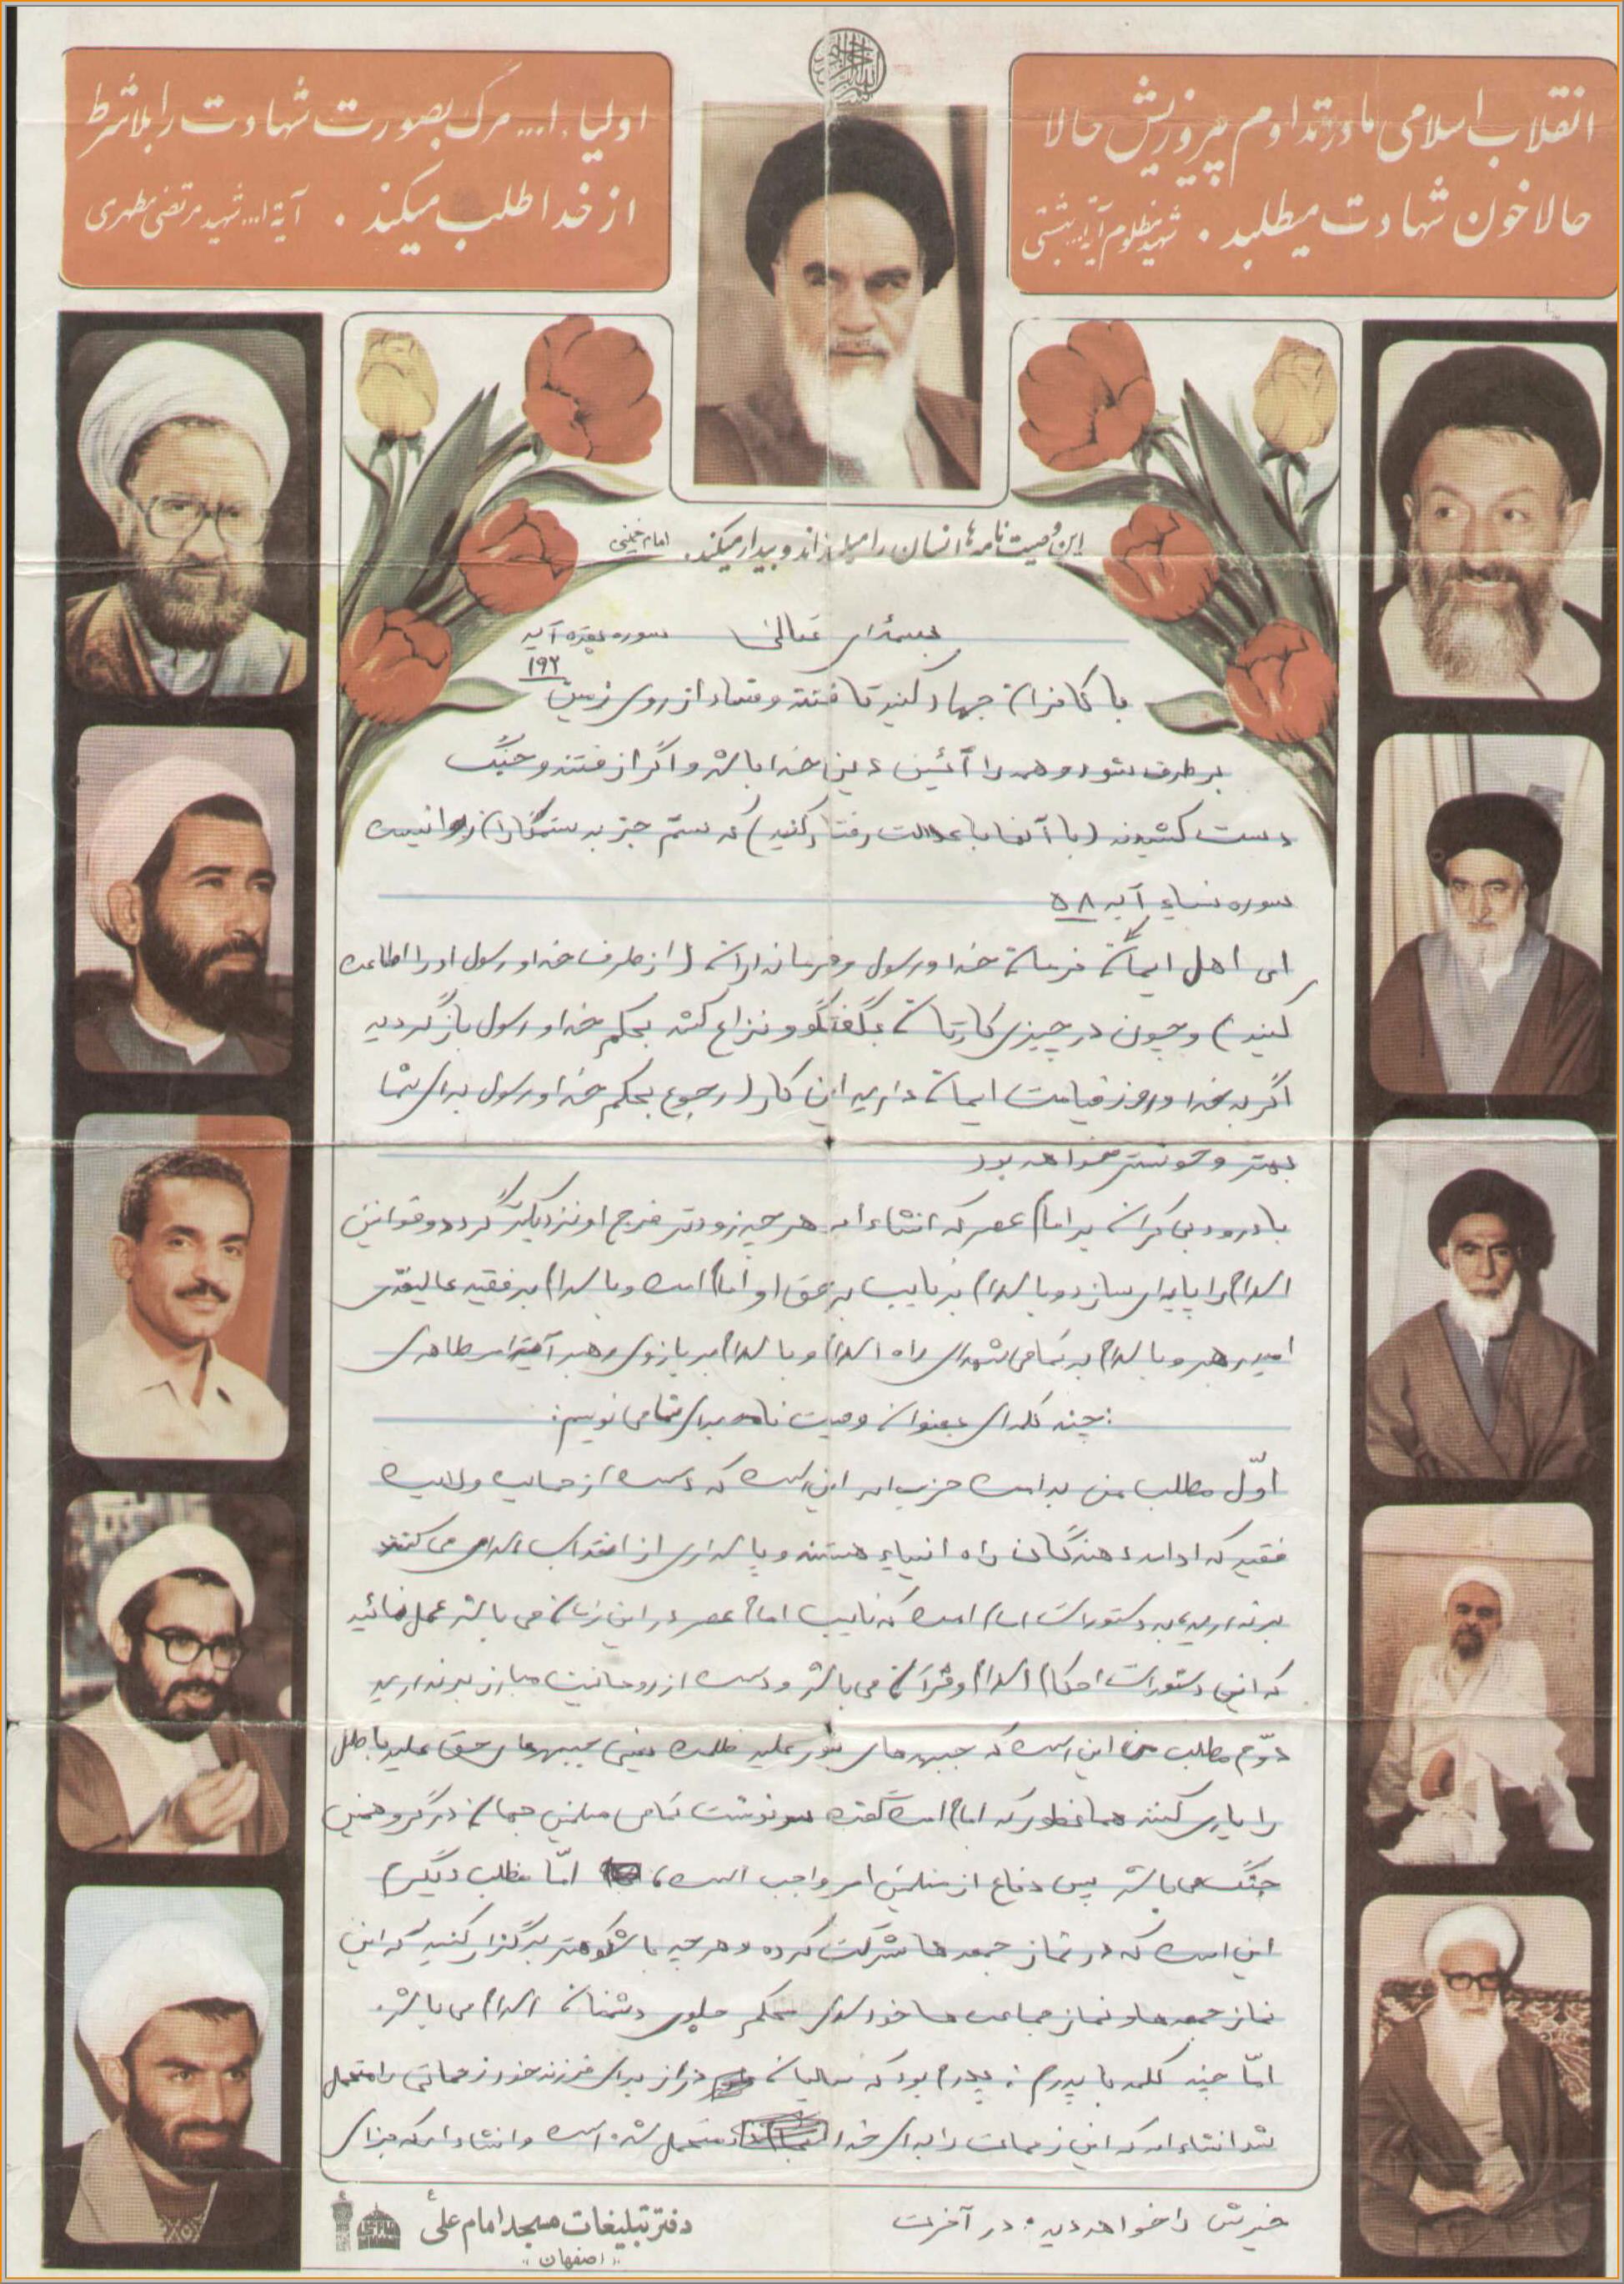 انقلاب اسلامی ما در تداوم پیروزیش حالا
حالا خون شهادت میطلبد . شهید مظلوم آیة ا... بهشتی
اولیاء ا... مرگ بصورت شهادت را بلاشرط
از خدا طلب میکند . آیة ا... شهید مرتضی مطهری
این وصیت نامه ها انسان را میلرزاند و بیدار میکند. امام خمینی
بسمه تعالی سوره بقره آیه
۱۹۲
با کافران جهاد کنید تا فتنه و فساد از روی زمین
بر طرف شود و همه را آئین دین خدا باشد و اگر از فتنه و جنگ
دست کشیدند (با آنها با عدالت رفتار کنید) که ستم جز به ستمکاران روا نیست
سوره نساء آیه ۵۸
ای اهل ایمان فرمان خدا و رسول و فرمانداران (از طرف خدا و رسول او را اطاعت
کنید) و چون در چیزی کارتان بگفتگو و نزاع کشد بحکم خدا و رسول بازگردید
اگر به خدا و روز قیامت ایمان دارید این کار (رجوع بحکم خدا و رسول برای شما
بهتر و خوشتر خواهد بود
با درود بی کران بر امام عصر که انشاءاله هر چه زودتر فرج او نزدیکتر گردد و قوانین
اسلام را پایدار سازد و با سلام بر نایب بر حق او امام امت و با سلام بر فقیه عالیقدر
امید رهبر و با سلام به تمامی شهدای راه اسلام و با سلام بر بازوی رهبر آیت اله طاهری
چند کلمه ای بعنوان وصیت نامه برای شما می نویسم:
اوّل مطلب من به امت حزب اله این است که دست از حمایت ولایت
فقیه که ادامه دهندگان راه انبیاء هستند و پاسداری از انقلاب اسلامی می کنند
برندارید، به دستورات امام امت که نایب امام عصر در این زمان می باشد عمل نمائید
که این دستورات احکام اسلام و قرآن می باشد و دست از روحانیت مبارز برندارید
دوّم مطلب من این است که جبهه های نور علیه ظلمت یعنی جبهه های حق علیه باطل
را یاری کنید همانطور که امام امت گفته سرنوشت تمامی مسلمین جهان در گرو همین
جنگ می باشد پس دفاع از مسلمین امر واجب است، امّا مطلب دیگرم
این است که در نماز جمعه ها شرکت کرده و هر چه با شکوهتر برگزار کنید که این
نماز جمعه ها و نماز جماعت ها خود سدی محکم جلوی دشمنان اسلام می باشد.
امّا چند کلمه با پدرم: پدرم بود که سالیان دراز برای فرزند خود زحماتی را متحمل
شد انشاءاله که این زحمات را برای خدا متحمل شده است و انشاءاله که جزای
خیرش را خواهد دید. در آخرت
دفتر تبلیغات مسجد امام علی
«اصفهان»